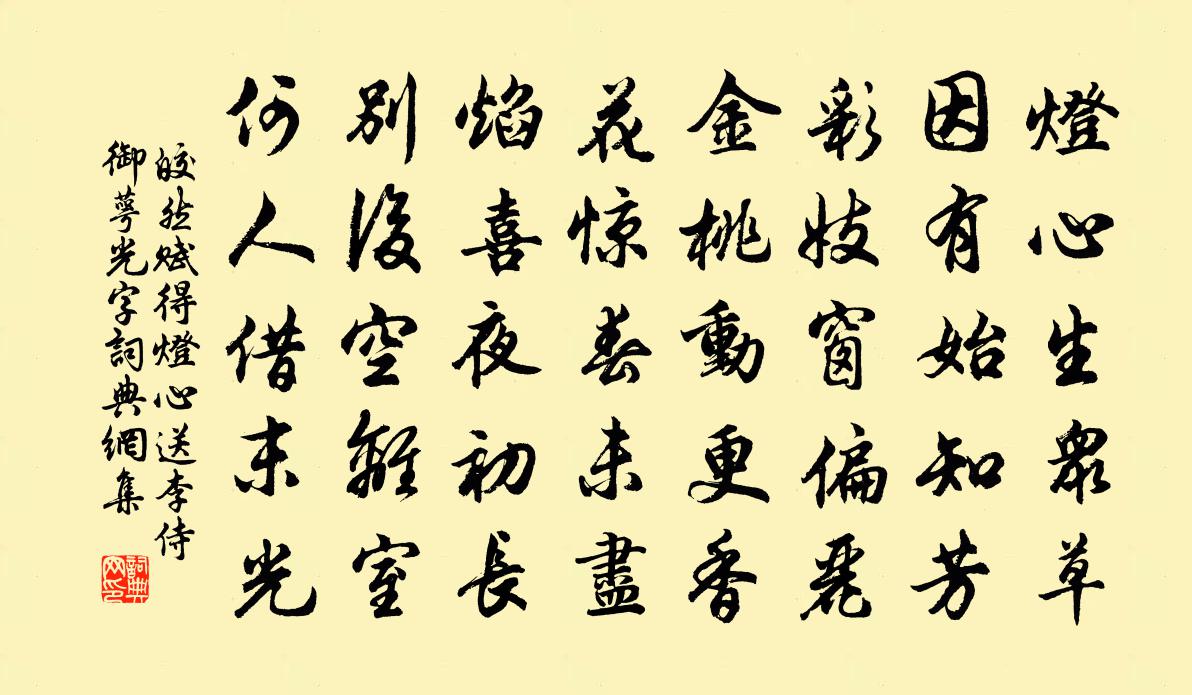 燈心生衆草
因有始知芳
彩妓窗偏麗
金桃動更香
花惊春未盡
焰喜夜初長
別後空離室
何人借末光
皎然賦得燈心送李侍
御萼光字詞典網集
詞典网印